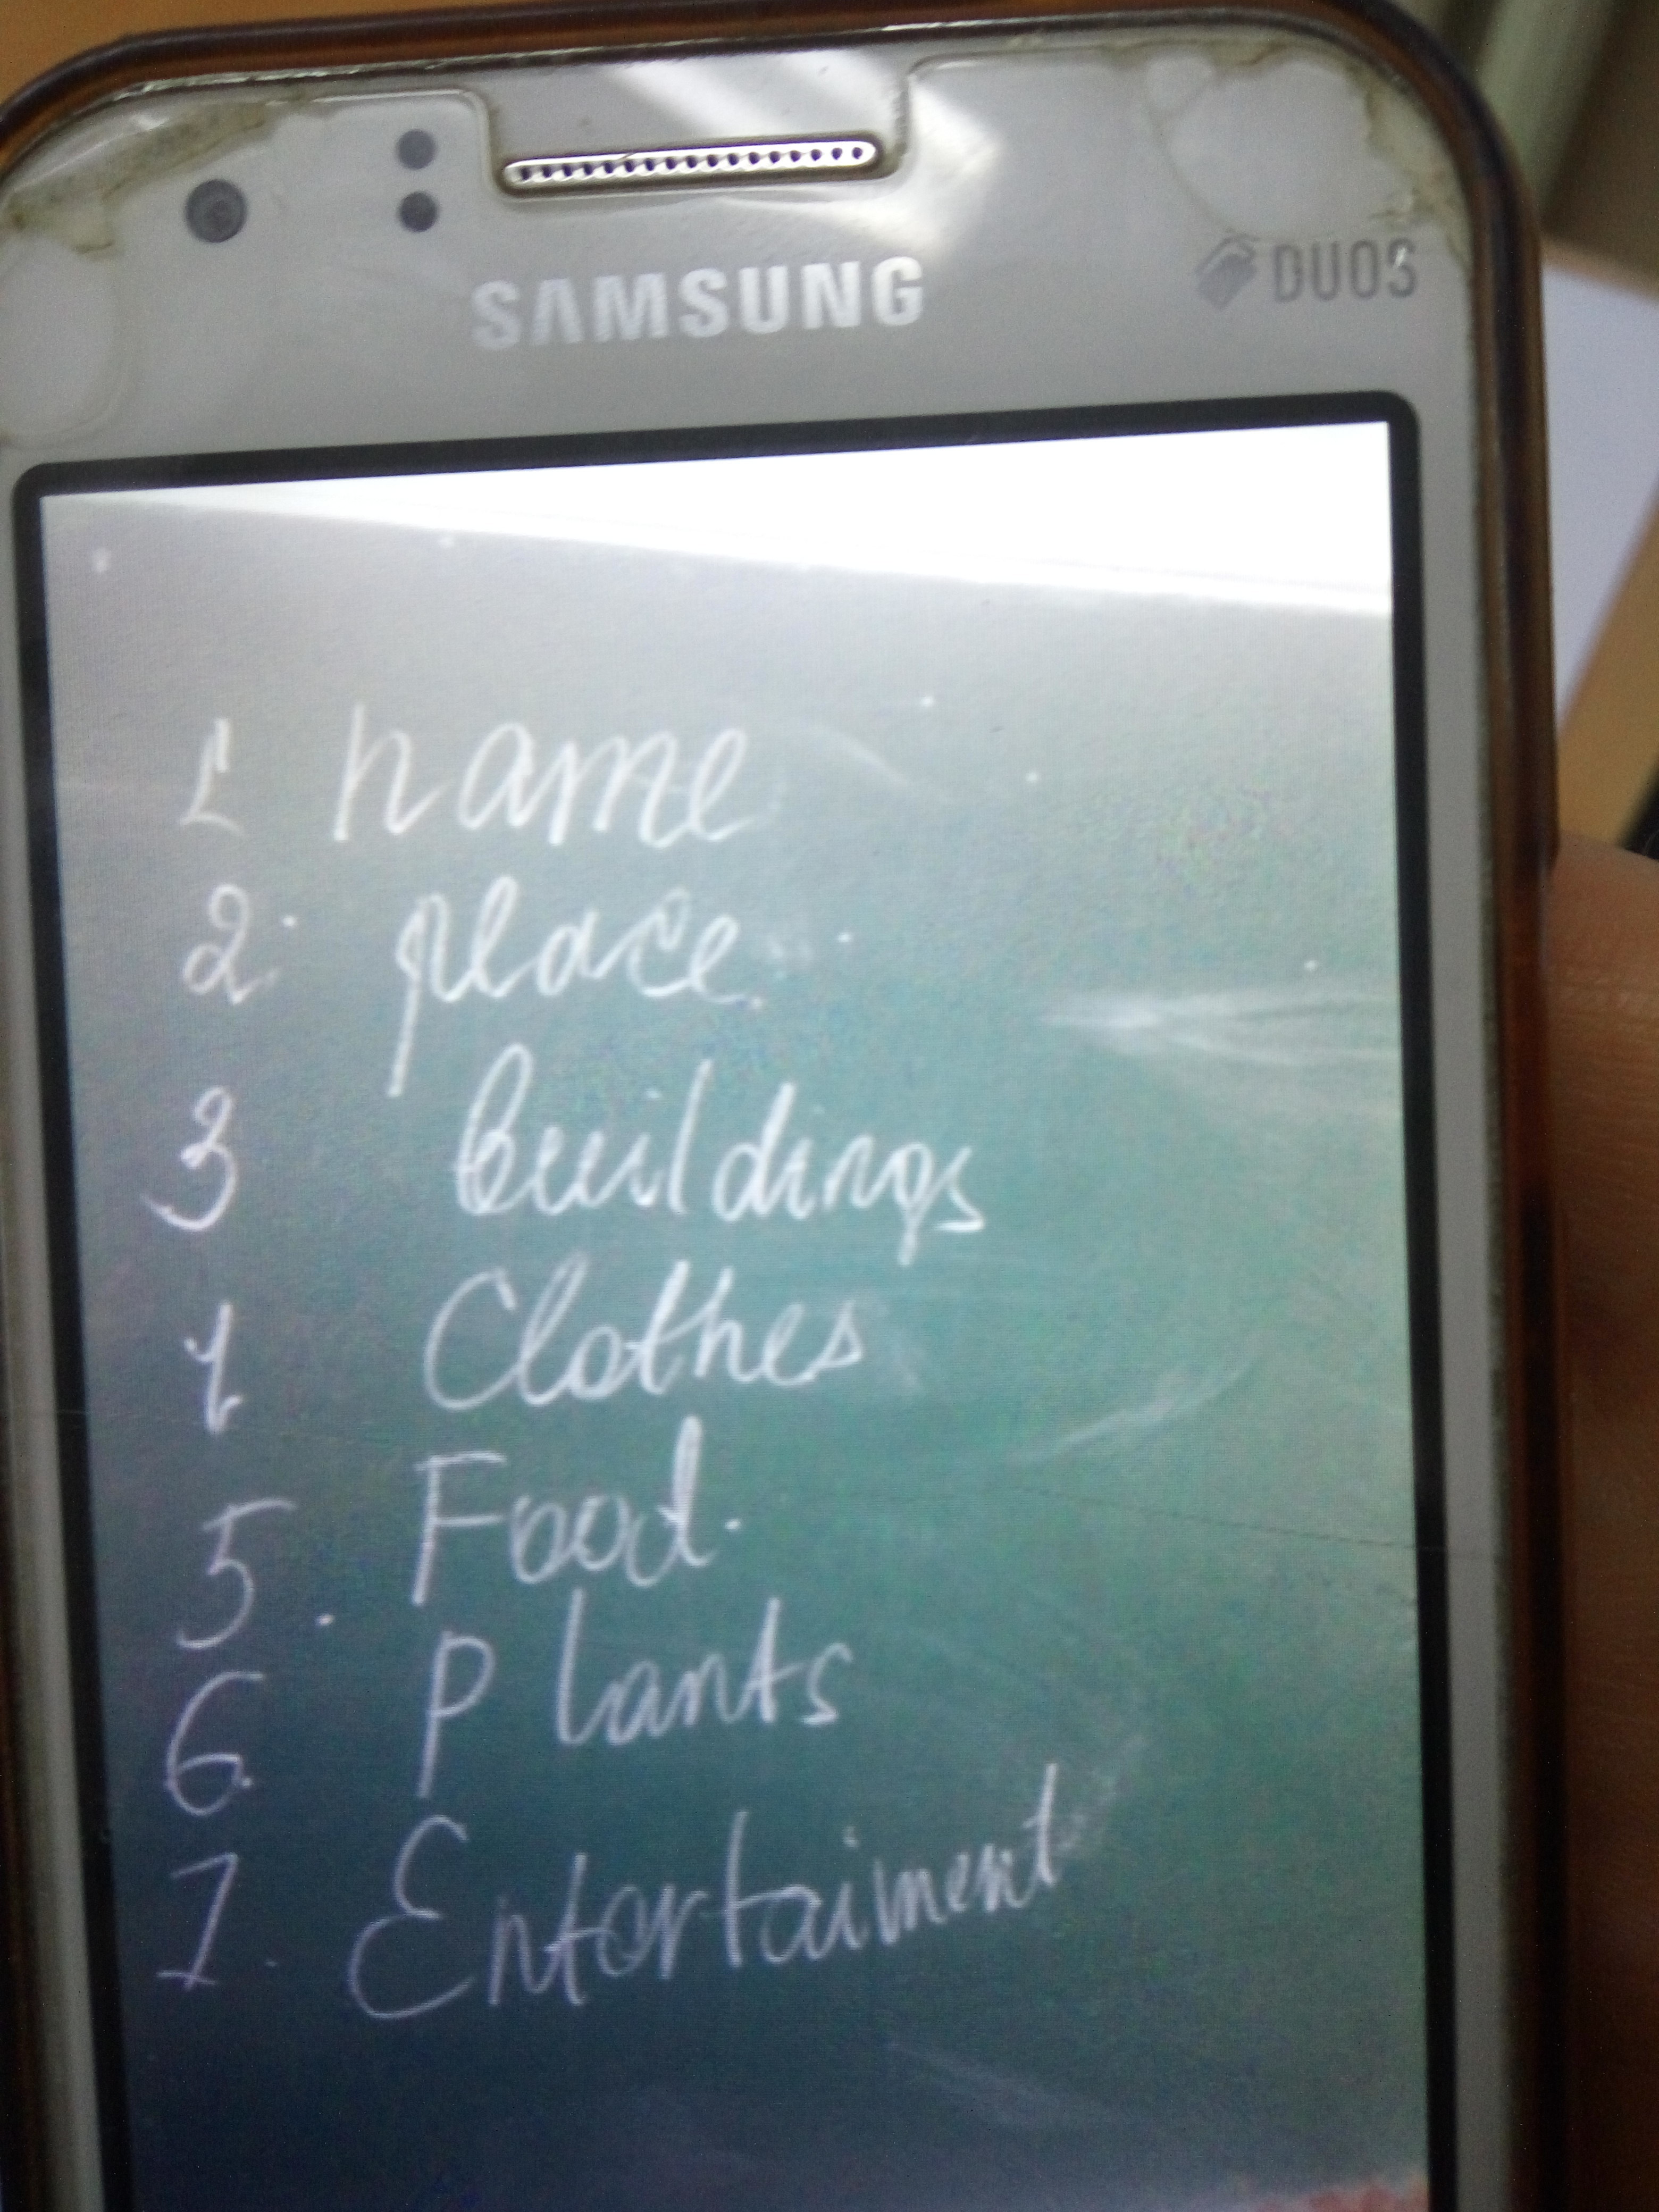 SAMSUNG
DUOS
1 name
2. place.
3 buildings
4 Clothes
5. Food.
6. Plants
7. Entertaiment